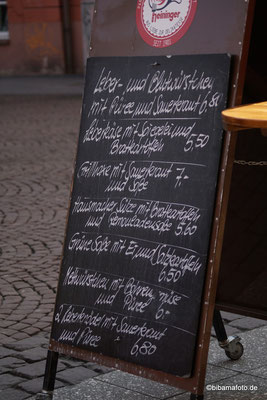 heininger
SEIT 1903
Leber- und Blutwürstchen
mit Püree und Sauerkraut 6,80
Leberkäse mit Spiegelei und
Bratkartoffeln 5,50
Grillhaxe mit Sauerkraut 7,-
und Soße
Hausmacher Sülze mit Bratkartoffeln
und Remouladensoße 5,60
Grüne Soße mit Ei und Salzkartoffeln
6,50
Mettwürstchen mit Bohnengemüse
und Püree 6,-
2 Leberknödel mit Sauerkraut
und Püree 6,80
©bibamafoto.de